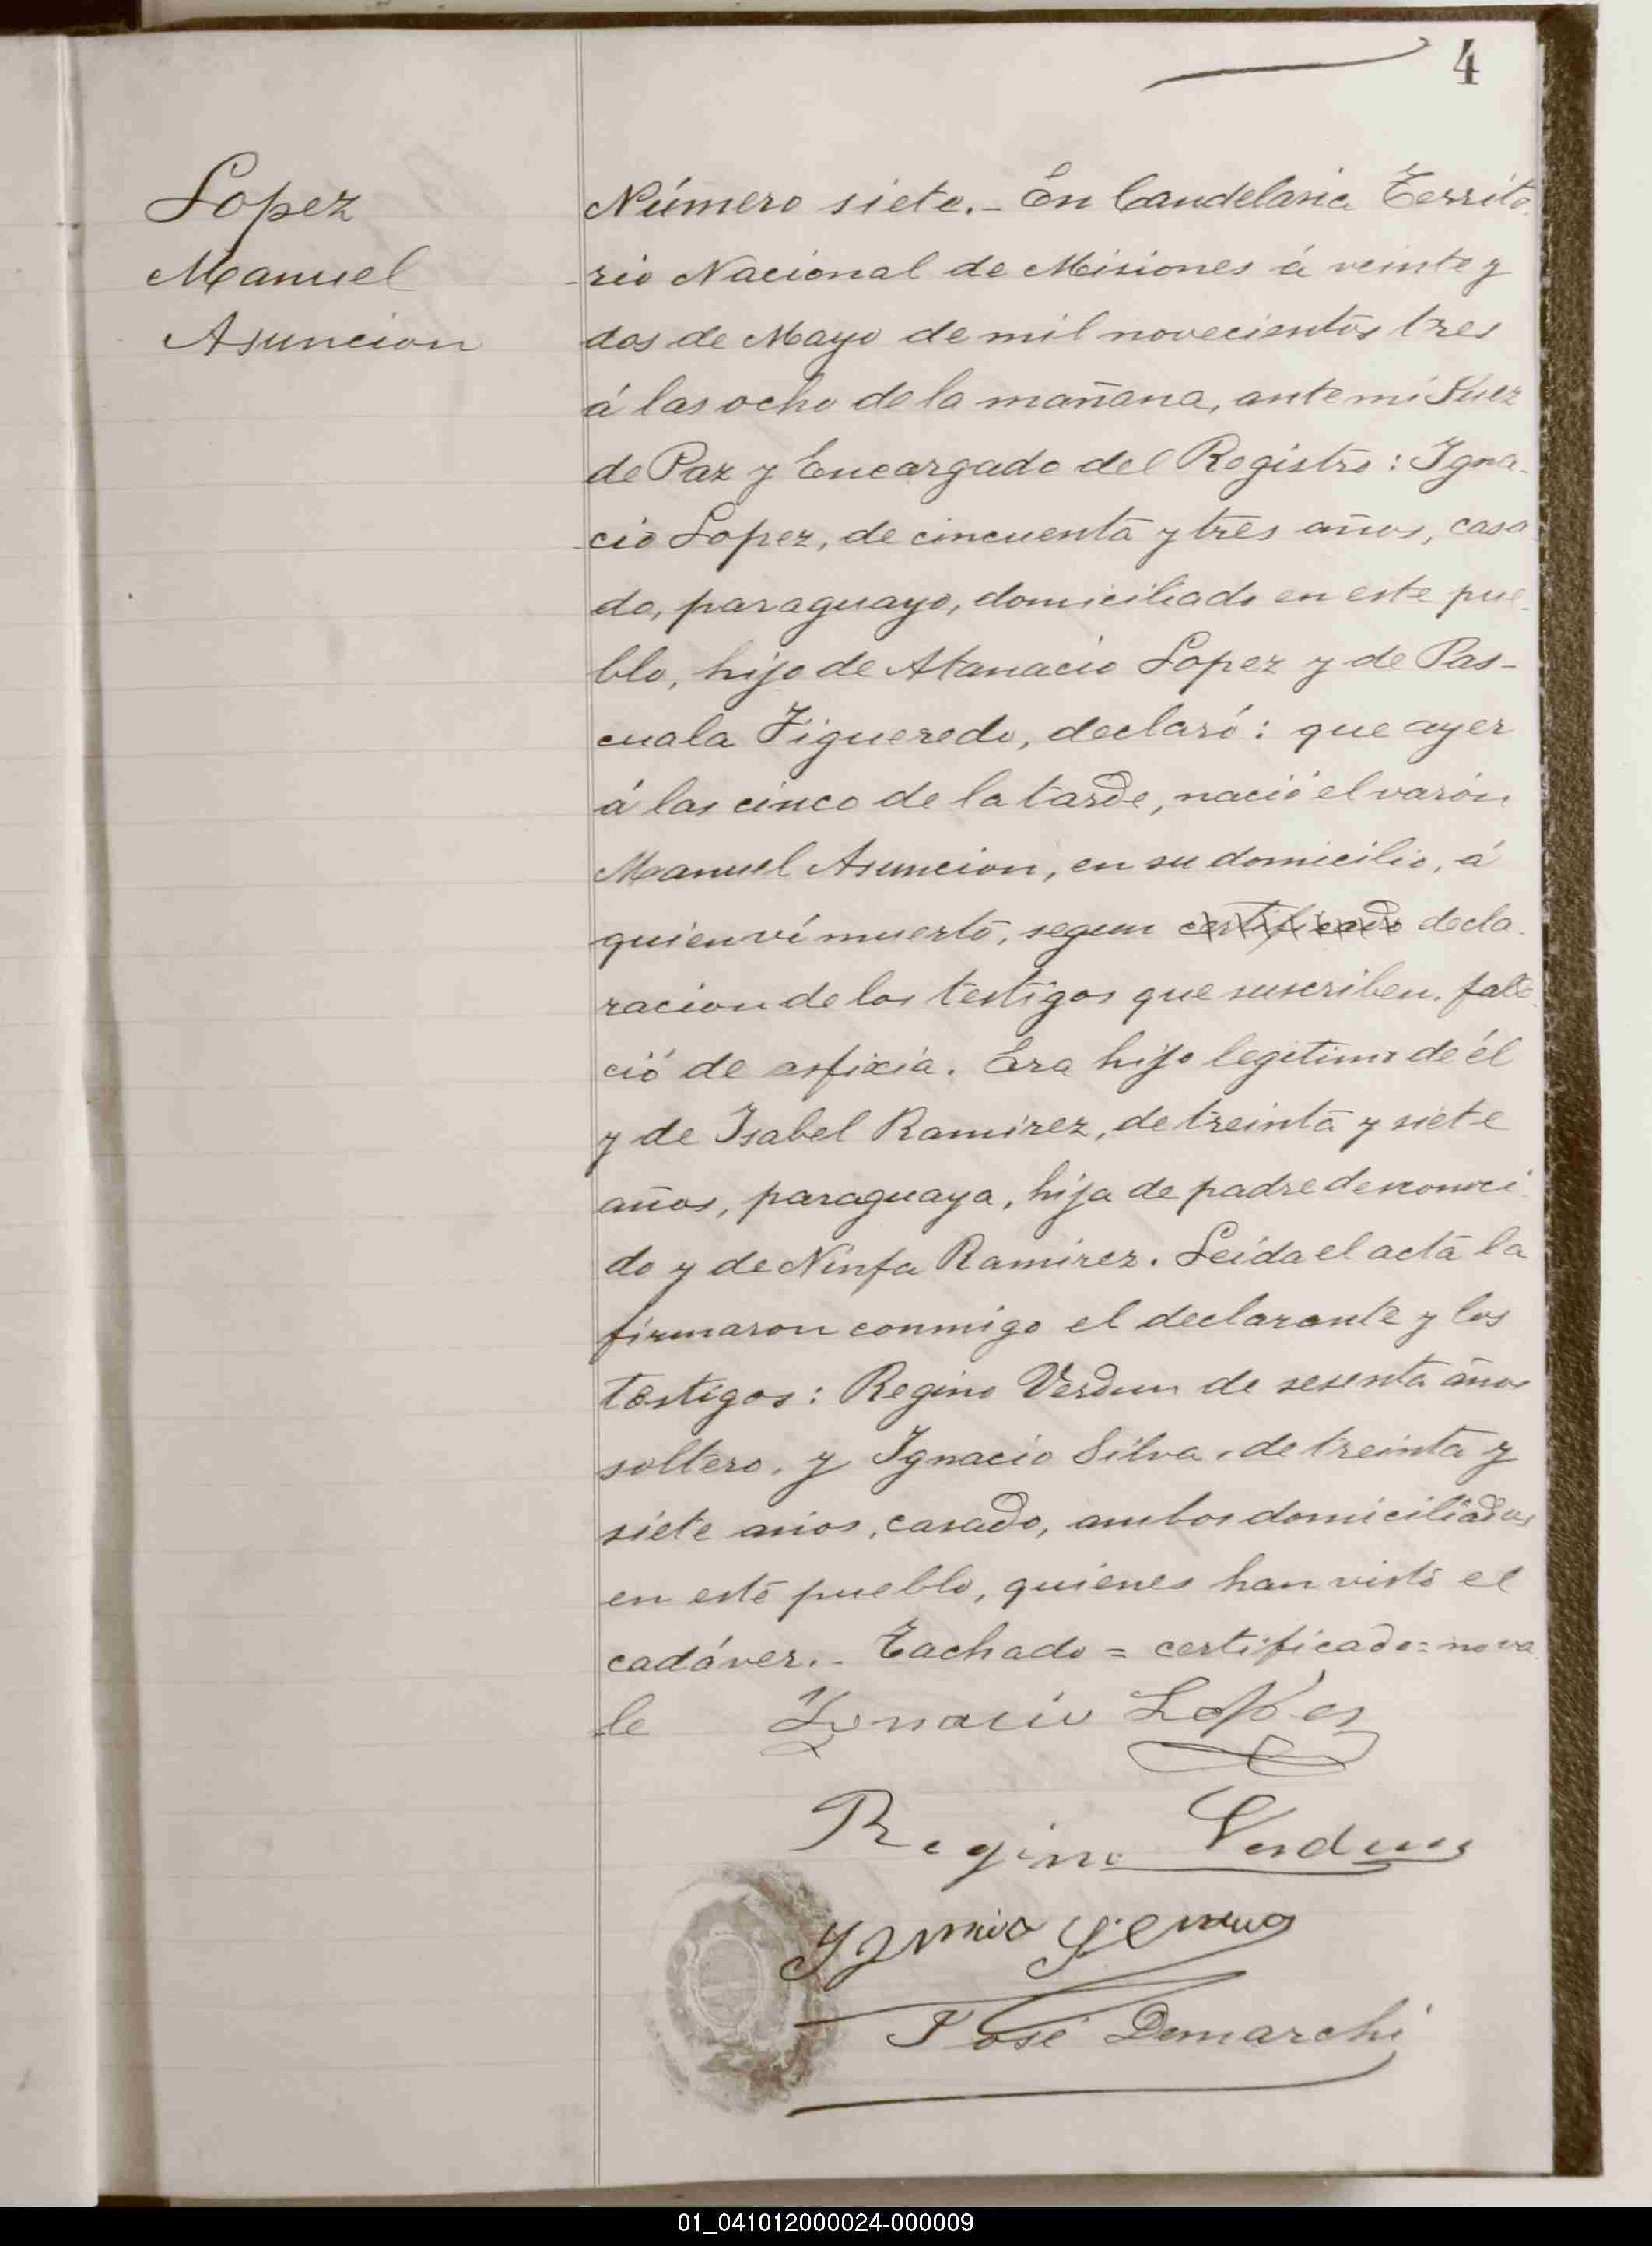 4
Lopez
Manuel
Asuncion
Número siete.- En Candelaria Territo
-rio Nacional de Misiones á veinte y
dos de Mayo de mil novecientos tres
á las ocho de la mañana, ante mi Juez
de Paz y Encargado del Registro: Igna-
-cio Lopez, de cincuenta y tres años, casa
do, paraguayo, domiciliado en este pue-
blo, hijo de Atanacio Lopez y de Pas-
cuala Figueredo, declaró: que ayer
á las cinco de la tarde, nació el varón
Manuel Asuncion, en su domicilio, á
quien ví muerto, segun certificado decla-
racion de los testigos que suscriben. falle
ció de asfixia. Era hijo legitimo de él
y de Isabel Ramirez, de treinta y siete
años, paraguaya, hija de padre desconoci
do y de Ninfa Ramirez. Leida el acta la
firmaron conmigo el declarante y los
testigos: Regino Verdun de sesenta años
soltero, y Ignacio Silva, de treinta y
siete años, casado, ambos domiciliados
en este pueblo, quienes han visto el
cadáver.- Tachado = certificado = no va
le Ignacio Lopes
Regino Verdun
José Demarchi
01_041012000024-000009